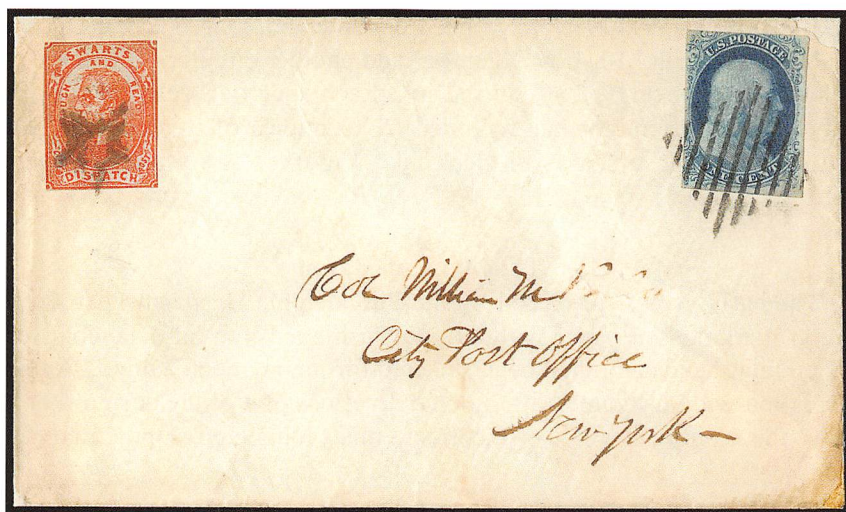 SWARTS
AND
DISPATCH
U.S. POSTAGE
ONE CENT
Col William M
City Post Office
New York —